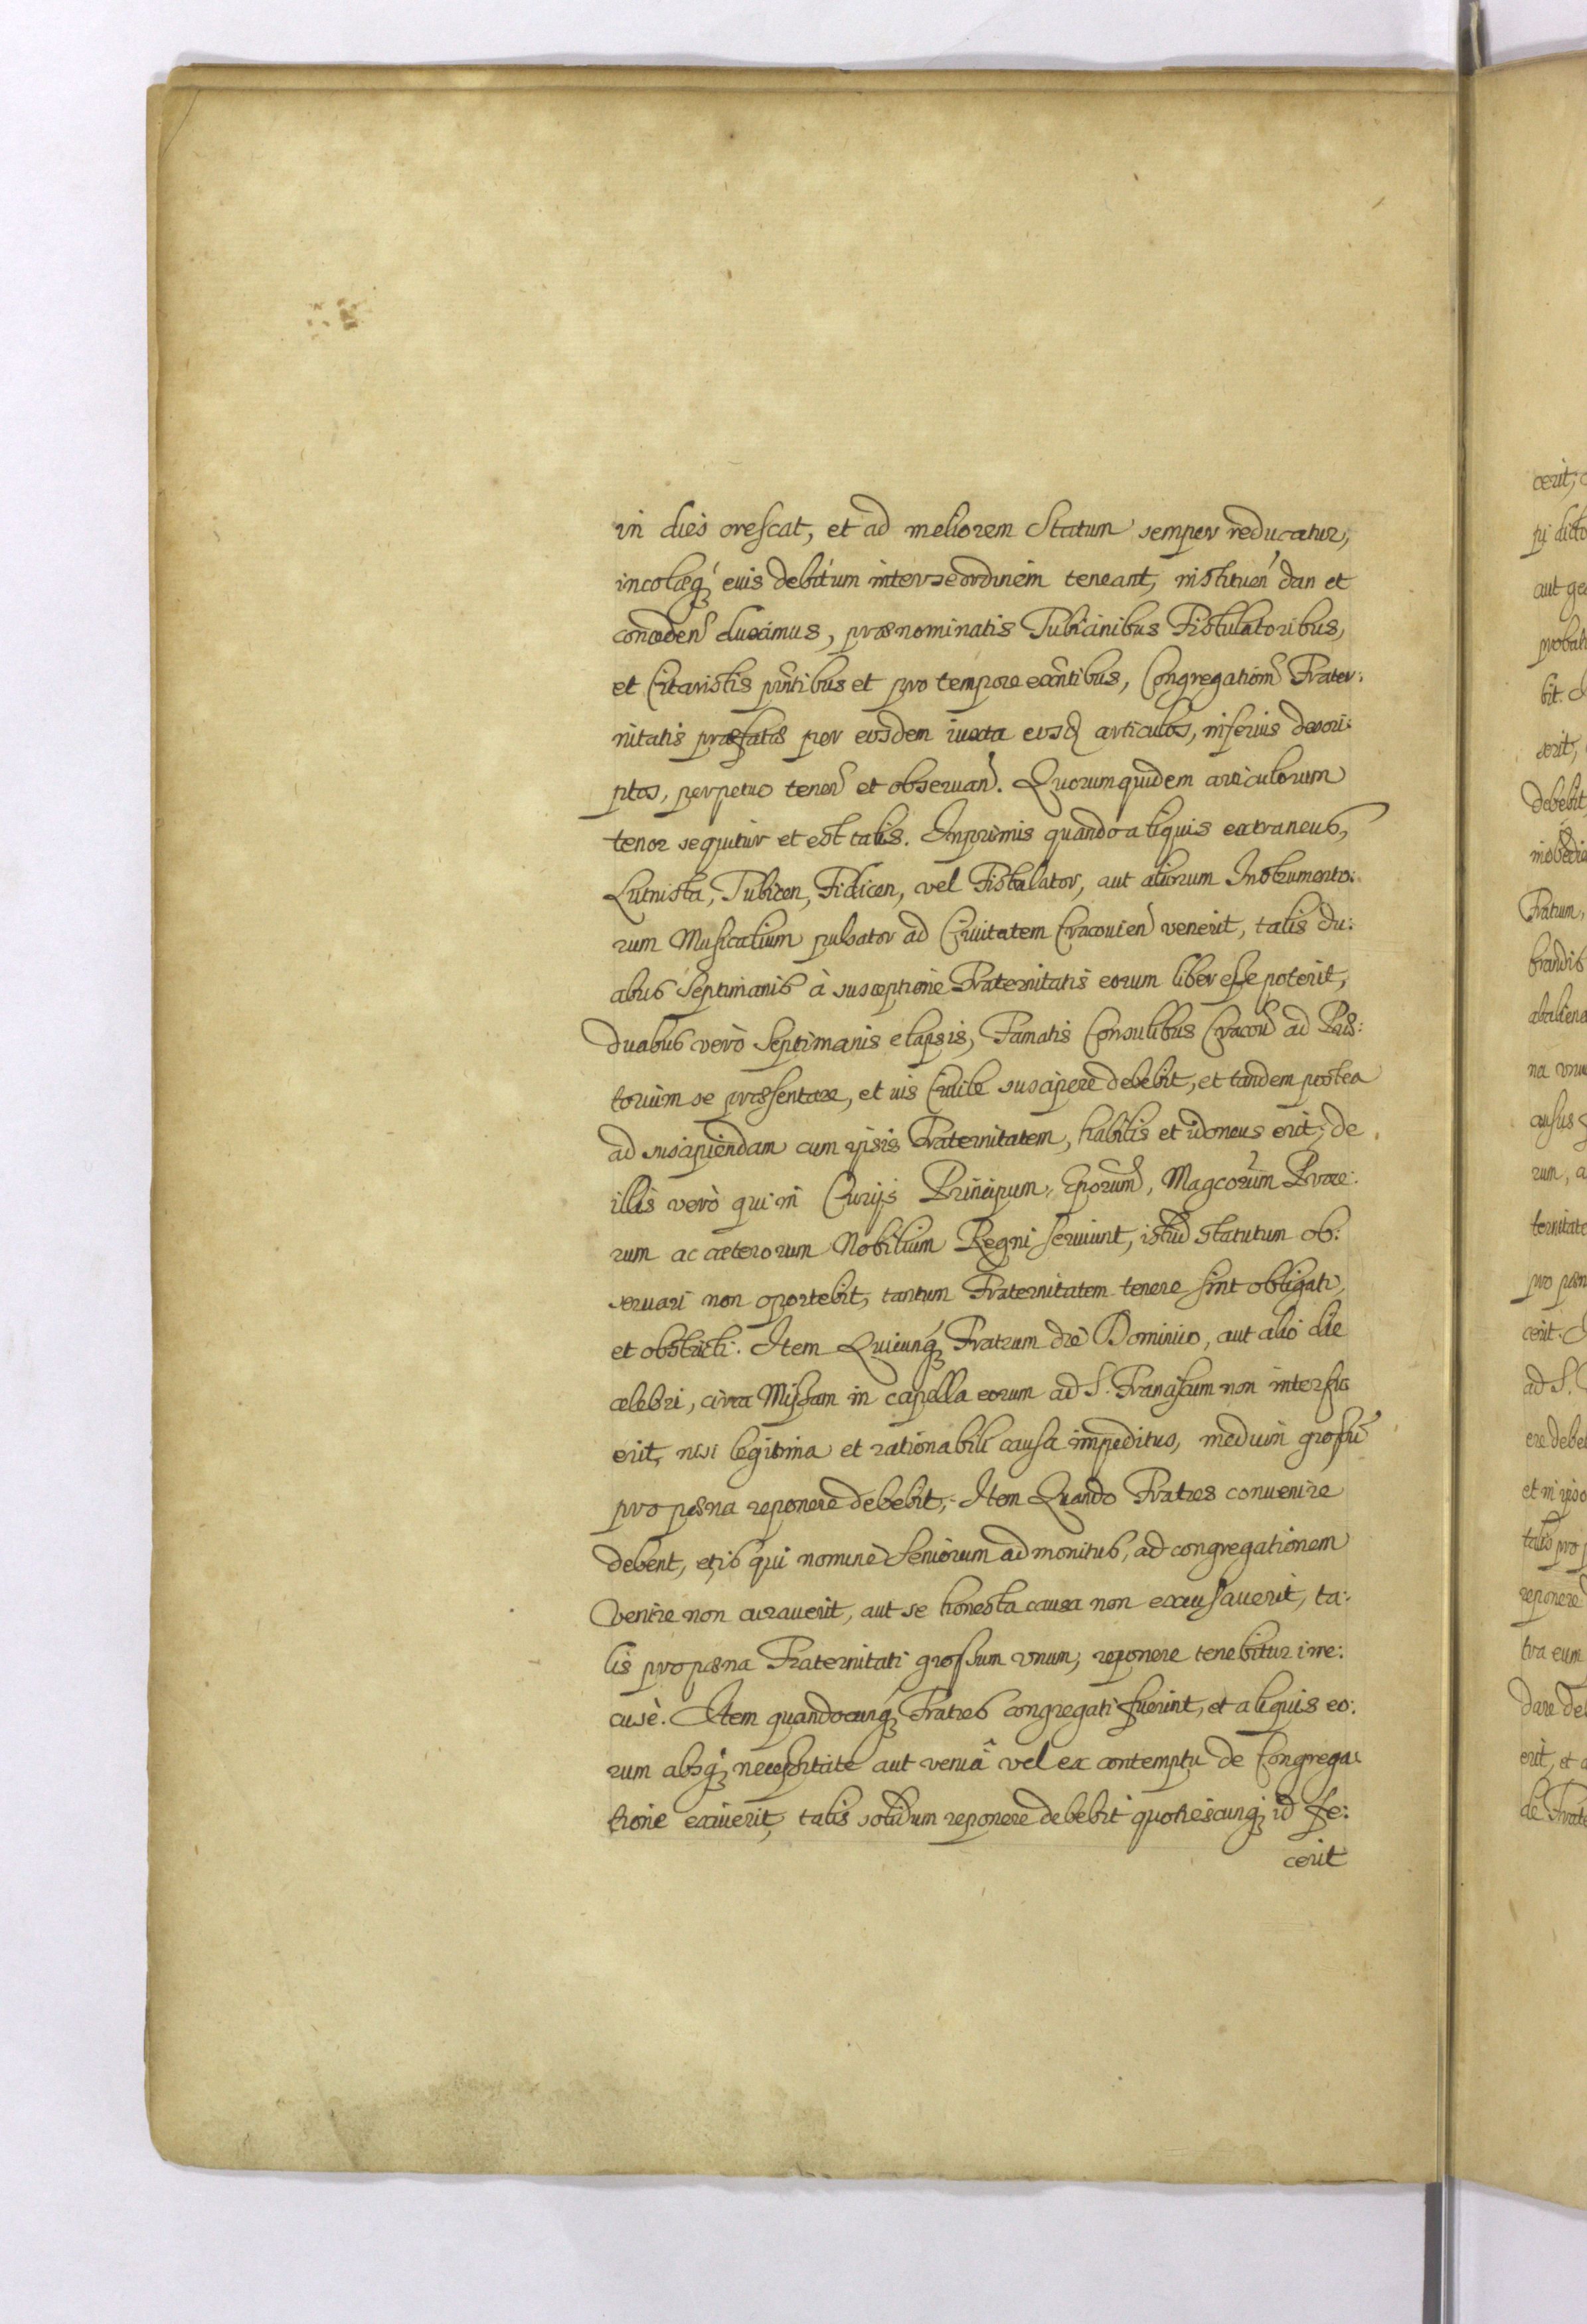 in dies crescat, et ad meliorem Statum semper reducatur,
incolæq́ȝ eius debitum inter se ordinem teneant, instituen̄dan et
conceden̄ duximus, prænominatis Tubicinibus Fistulatoribus,
et Citaristis pn̄tibus et pro tempore exn̄tibus, Congregatiom̄ Frater:
nitatis præfatis per eosdem iuxta eosdȝ articulos, inferius descri:
ptos, perpetuo tenen̄ et obseruan̄. Quorum quidem articulorum
tenor sequitur et est talis. Inprimis quando aliquis extraneus,
Lutnista, Tubicen, Fidicen, vel Fistulator, aut aliorum Instrumento:
rum Musicalium pulsator ad Ciuitatem Cracouien̄ venerit, talis du:
abus Septimanis à susceptione Fraternitatis eorum liber esse poterit,
duabus verò Septimanis elapsis, Famatis Consulibus Cracou̅ ad Præ:
torium se præsentare, et ius Ciuile suscipere debebit, et tandem postea
ad suscipiendam cum ipsis Fraternitatem, habilis et idoneus erit; de
illis verò qui in Curijs Principum, Ep̄orum, Magcorum Proce:
rum ac cæterorum Nobilium Regni seruiunt, istud statutum ob:
seruari non oportebit, tantum Fraternitatem tenere sint obligati,
et obstricti. Item Quicunq́ȝ Fratrum die Dominico, aut alio die
celebri, circa Missam in capella eorum ad S. Franciscum non interfu
erit, nisi legitima et rationabili causa impeditus, medium grossū
pro pæna reponere debebit, Item Quando Fratres conuenire
debent, et is qui nomine Seniorum admonitus, ad congregationem
venire non curauerit, aut se honesta causa non excusauerit, ta:
lis pro pæna Fraternitati grossum vnum, reponere tenebitur irre:
cusè. Item quandocunq́ȝ Fratres congregati fuerint, et aliquis eo:
rum absq́ȝ necessitate aut veniâ vel ex contemptu de Congrega:
tione exiuerit, talis solidum reponere debebit quotiescunq́ȝ id fe:
cerit